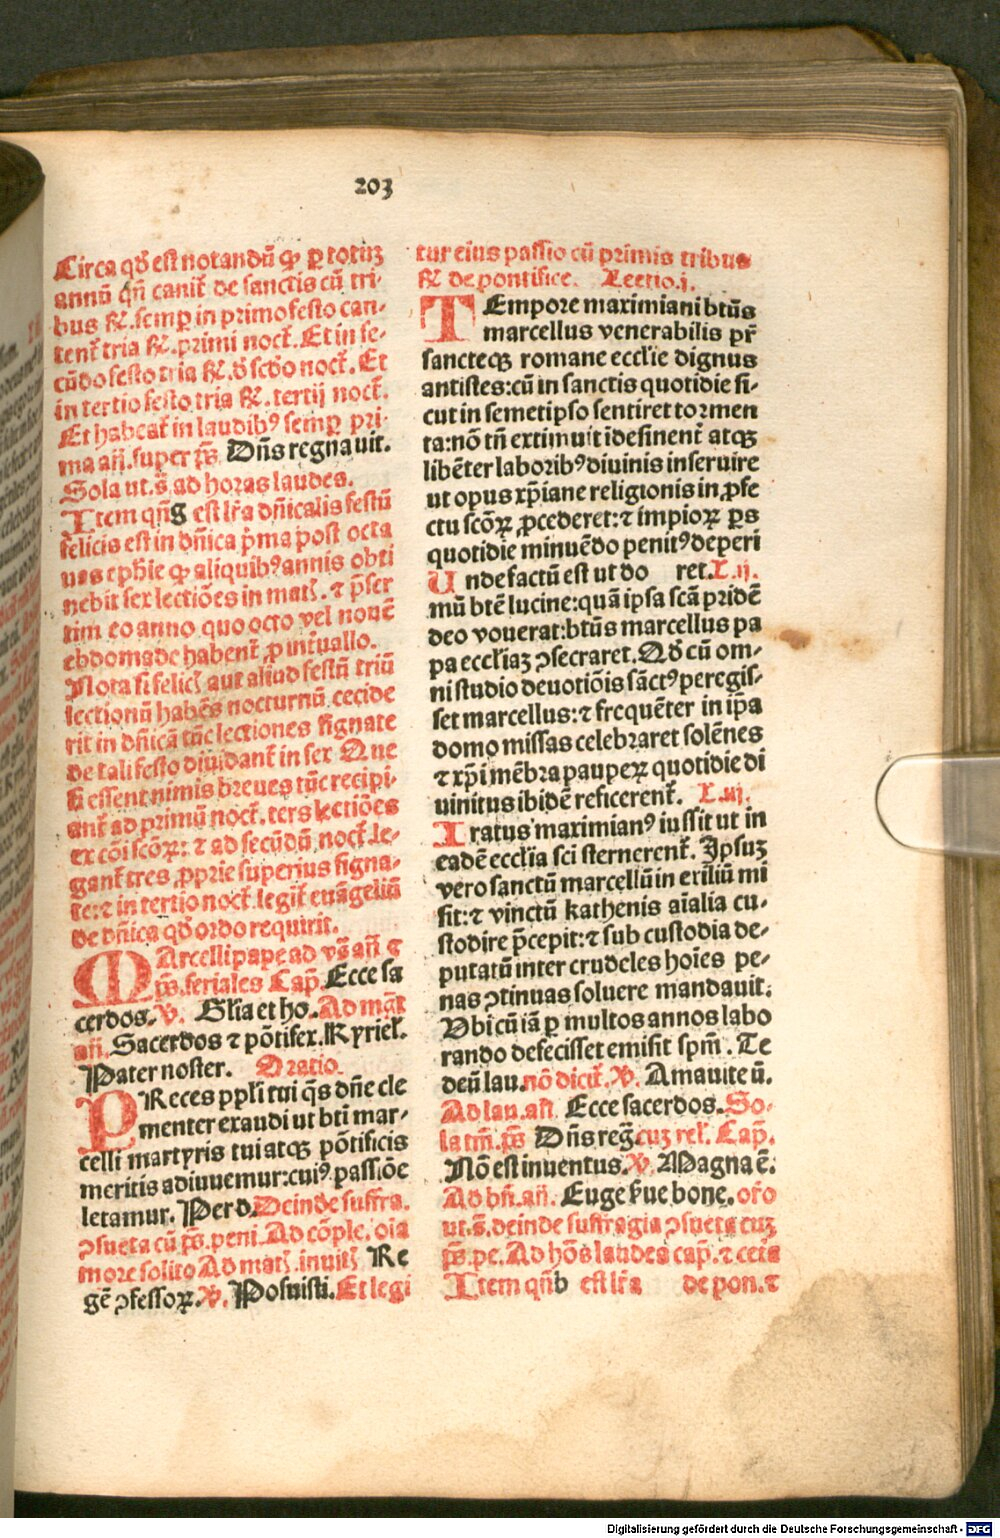 203
Circa qđ est notandū ꝙ ꝑ totuꝫ
annū qñ canit᷑ de sanctis cū tri-
bus ℟. semꝑ in primo festo can-
tent᷑ tria ℟. primi noct᷑. Et in se-
cūdo festo tria ℟. đ scđo noct᷑. Et
in tertio festo tria ℟. tertij noct᷑.
Et habeāt in laudibꝰ semꝑ pri-
ma añ. super p̄s Dñs regnauit.
Sola ut. s̄. ad horas laudes.
Item qñ g est lr̄a dñicalis festū
felicis est in dñica p̄ma post octa
uas eph̄ie ꝙ aliquibꝰ annis obti
nebit sex lectiōes in mat᷑. ⁊ p̄ser
tim eo anno quo octo vel nouē
ebdomade habent᷑ ꝓ int̄uallo.
Nota si felicꝭ aut aliud festū triū
lectionū habēs nocturnū cecide
rit in dñica tūc lectiones signate
de tali festo diuidant᷑ in sex Que
si essent nimis breues tūc recipi-
ant᷑ ad primū noct᷑. ters lectiōes
ex cōi scōꝝ: ⁊ ad secūdū noct᷑. le-
gant᷑ tres ꝓprie superius signa-
te: ⁊ in tertio noct᷑. legit᷑ euāgeliū
de dñica qđ ordo requirit.
MArcelli pape ad vē̄ añ ⁊
p̄s. feriales Cap̄. Ecce sa
cerdos. ℣. Gl̄ia et ho. Ad mag̅t
añ. Sacerdos ⁊ pōtifex. Kyriel̄.
Pater noster. Oratio.
PReces ppl̄i tui q̄s dñe cle
menter exaudi ut bt̄i mar-
celli martyris tui atqꝫ pōtificis
meritis adiuuemur: cuiꝰ passiōe
letamur. Per d. Deinde suffra.
ꝯsueta cū p̄s. peni. Ad cōple. oīa
more solito Ad mat᷑. inuit᷑ Re
gē ꝯfessoꝝ. ℣. Posuisti. Et legi
tur eius passio cū primis tribus
℟. de pontifice. Lectio .j.
TEmpore maximiani bt̄us
marcellus venerabilis pr̄
sancteqꝫ romane eccl̄ie dignus
antistes: cū in sanctis quotidie si-
cut in semetipso sentiret tormen
ta: nō tñ extimuit idesinent᷑ atqꝫ
libēter laboribꝰ diuinis inseruire
ut opus xp̄iane religionis in ꝓfe
ctu scōꝝ ꝓcederet: ⁊ impioꝝ ꝑs
quotidie minuēdo penitꝰ deperi
Unde factū est ut do ret. L.ij.
mū bt̄e lucine: quā ipsa scā pridē
deo vouerat: bt̄us marcellus pa
pa eccl̄iaꝫ ꝯsecraret. Qđ cū om-
ni studio deuotiōis sāctꝰ peregis-
set marcellus: ⁊ frequēter in ip̄a
domo missas celebraret solēnes
⁊ xp̄i mēbra pauperꝝ quotidie di
uinitus ibidē reficerent᷑. L.iij.
Iratus maximianꝰ iussit ut in
eadē eccl̄ia sci sternerent᷑. Ipsuꝫ
vero sanctū marcellū in exiliū mi
sit: ⁊ vinctū kathenis aīalia cu-
stodire p̄cepit: ⁊ sub custodia de-
putatū inter crudeles hoīes pe-
nas ꝯtinuas soluere mandauit.
Vbi cū iā ꝑ multos annos labo
rando defecisset emisit spm̄. Te
deū lau. nō dicit᷑. ℣. Amauit eū.
Ad lau. añ. Ecce sacerdos. So-
la tm̄. p̄s Dñs reg̅. cuꝫ rel̄. Cap̄.
Nō est inuentus. ℣. Magna ē.
Ad bñ. añ. Euge s̄ue bone. or̄o
ut. s̄. deinde suffragia ꝯsueta cuꝫ
p̄s. pe. Ad hōs laudes cap̄. ⁊ cetꝭ
Item qñ b est lr̄a de pon. ⁊
Digitalisierung gefördert durch die Deutsche Forschungsgemeinschaft - DFG